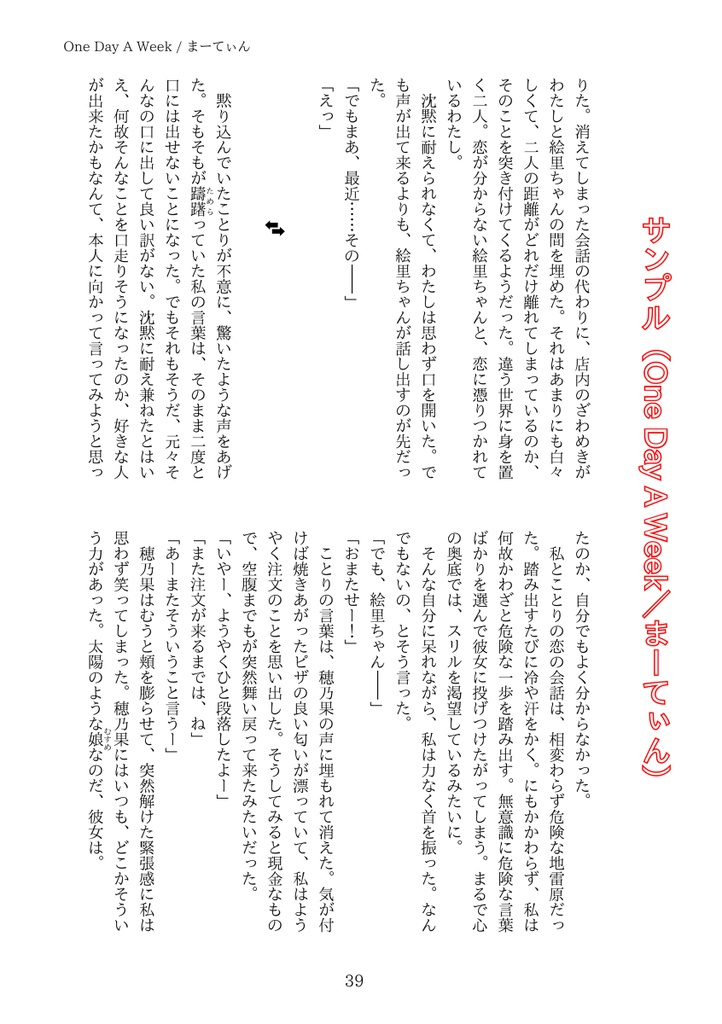 One Day A Week / まーてぃん
サンプル（One Day A Week／まーてぃん）
りた。消えてしまった会話の代わりに、店内のざわめきが
わたしと絵里ちゃんの間を埋めた。それはあまりにも白々
しくて、二人の距離がどれだけ離れてしまっているのか、
そのことを突き付けてくるようだった。違う世界に身を置
く二人。恋が分からない絵里ちゃんと、恋に憑りつかれて
いるわたし。
沈黙に耐えられなくて、わたしは思わず口を開いた。で
も声が出て来るよりも、絵里ちゃんが話し出すのが先だっ
た。
「でもまあ、最近……その――」
「えっ」
黙り込んでいたことりが不意に、驚いたような声をあげ
た。そもそもが躊躇っていた私の言葉は、そのまま二度と
ためら
口には出せないことになった。でもそれもそうだ、元々そ
んなの口に出して良い訳がない。沈黙に耐え兼ねたとはい
え、何故そんなことを口走りそうになったのか、好きな人
が出来たかもなんて、本人に向かって言ってみようと思っ
たのか、自分でもよく分からなかった。
私とことりの恋の会話は、相変わらず危険な地雷原だっ
た。踏み出すたびに冷や汗をかく。にもかかわらず、私は
何故かわざと危険な一歩を踏み出す。無意識に危険な言葉
ばかりを選んで彼女に投げつけたがってしまう。まるで心
の奥底では、スリルを渇望しているみたいに。
そんな自分に呆れながら、私は力なく首を振った。なん
でもないの、とそう言った。
「でも、絵里ちゃん――」
「おまたせー！」
ことりの言葉は、穂乃果の声に埋もれて消えた。気が付
けば焼きあがったピザの良い匂いが漂っていて、私はよう
やく注文のことを思い出した。そうしてみると現金なもの
で、空腹までもが突然舞い戻って来たみたいだった。
「いやー、ようやくひと段落したよー」
「また注文が来るまでは、ね」
「あーまたそういうこと言うー」
穂乃果はむうと頬を膨らませて、突然解けた緊張感に私は
思わず笑ってしまった。穂乃果にはいつも、どこかそうい
う力があった。太陽のような娘なのだ、彼女は。
むすめ
39